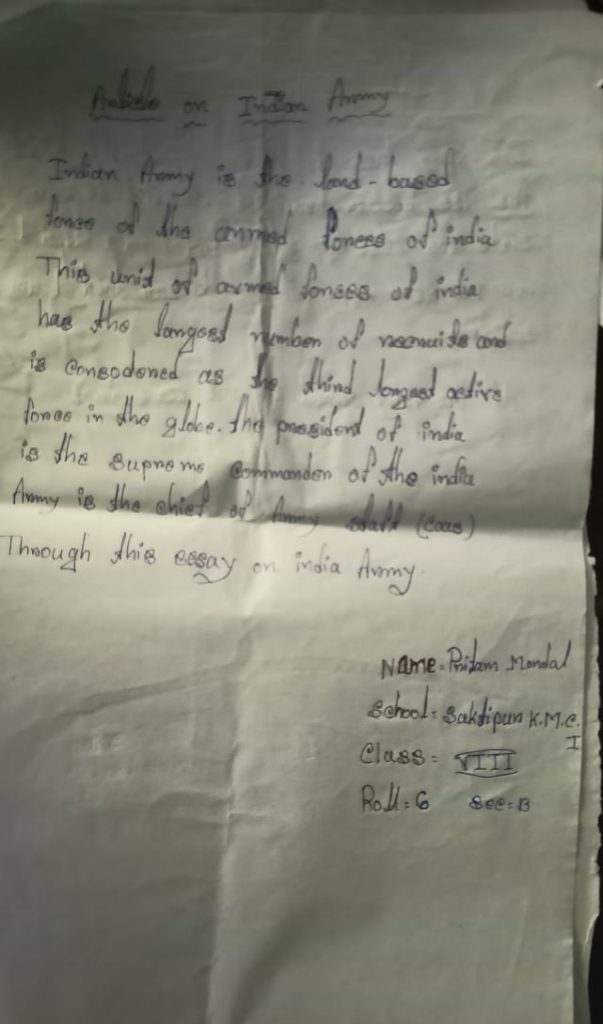 Article on Indian Army
Indian Army is the land-based
force of the armed forces of india
This unit of armed forces of india
has the largest number of recruits and
is Consodered as the third largest active
force in the globe. the president of india
is the supreme Commander of the india
Army is the chief of Army staff (coas)
Through this essay on india Army.
Name = Pritam Mondal
School = Saktipur K.M.C.
I
Class = VIII
Roll = 6 Sec = B